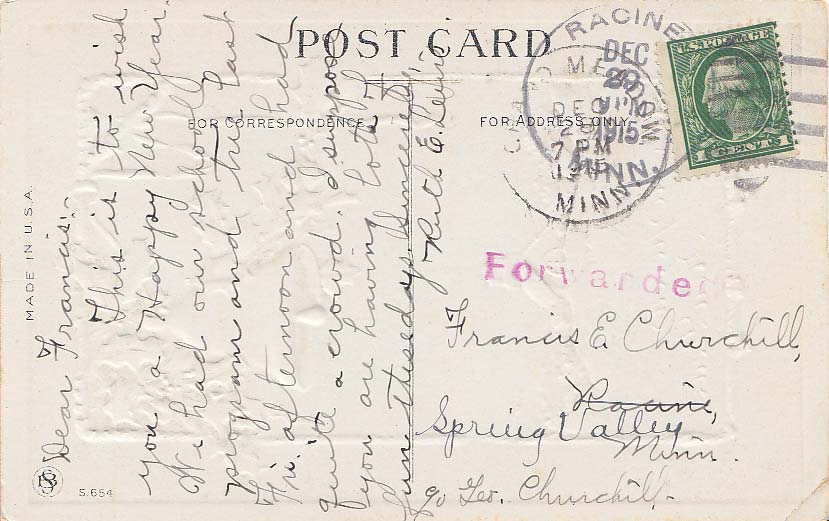 POST CARD
FOR CORRESPONDENCE
FOR ADDRESS ONLY
RACINE
DEC
29
1915
MINN.
GRAND MEADOW
DEC
29
7 PM
1915
MINN
U.S. POSTAGE
1 CENT 1
Forwarded
MADE IN U.S.A.
Dear Francis:-
This is to wish
you a Happy New Year.
We had our school
program and tree last
Fri. afternoon and had
quite a crowd. I suppose
you are having lots of
fun these days. Sincerely,
Ruth E. Lewis
Francis E. Churchill,
Racine,
Spring Valley
Minn.
c/o Geo. Churchill.
S.654